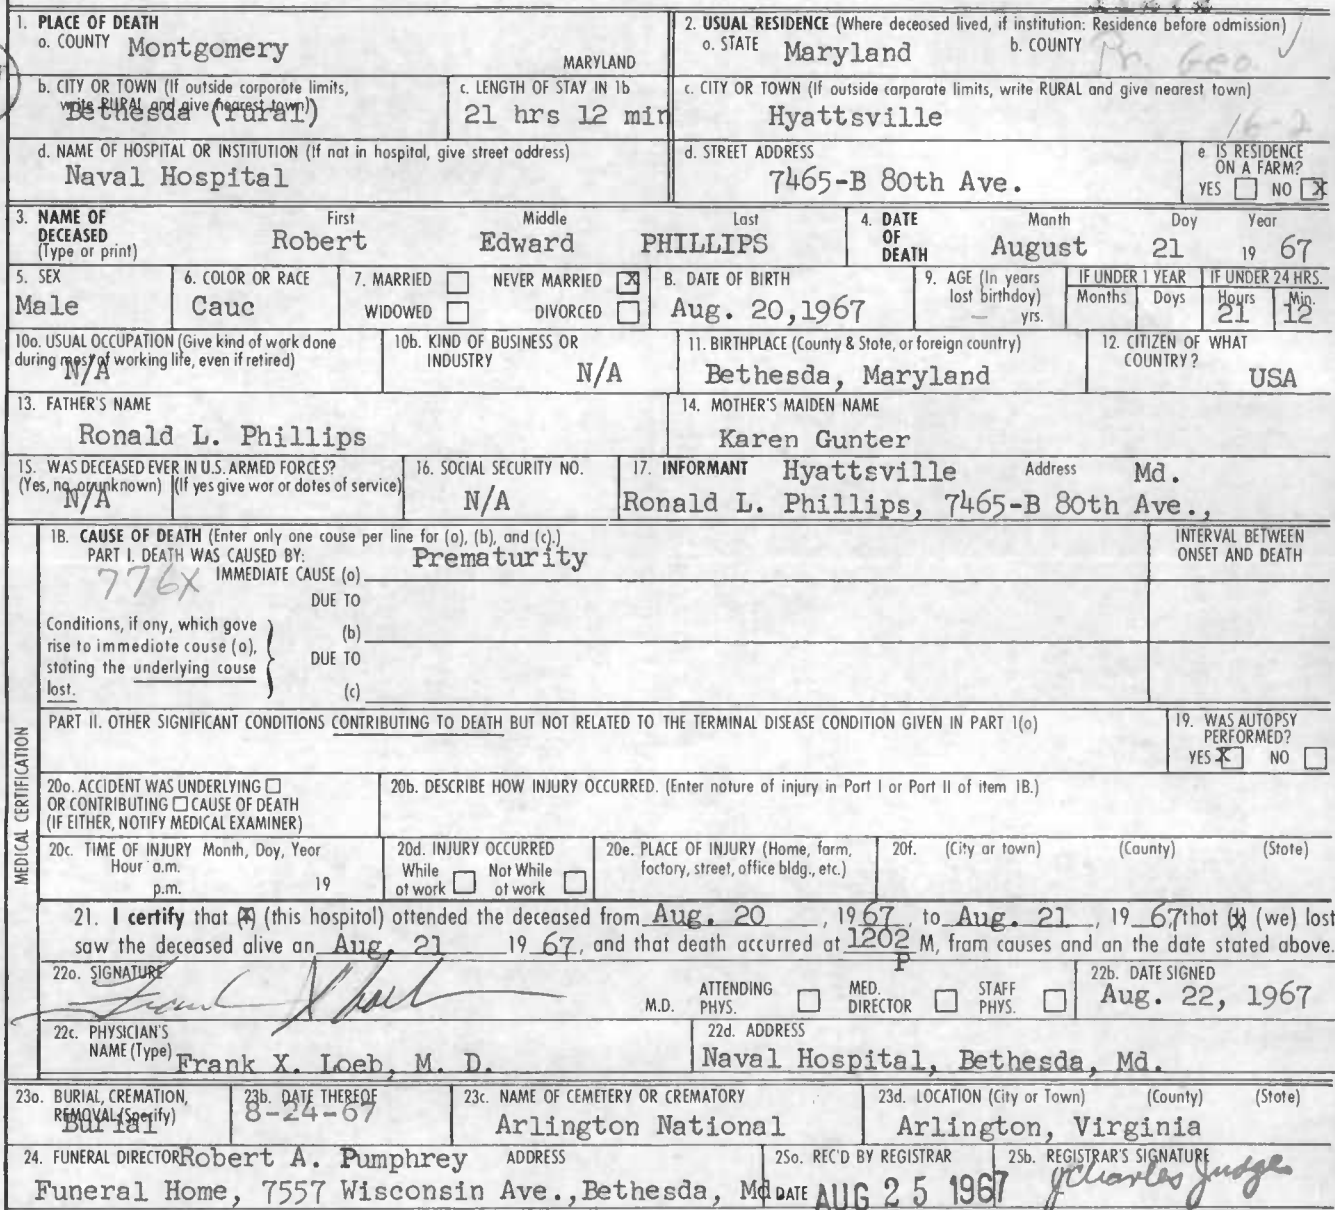 1. PLACE OF DEATH
a. COUNTY Montgomery MARYLAND
2. USUAL RESIDENCE (Where deceased lived, if institution: Residence before admission)
a. STATE Maryland b. COUNTY Pr. Geo.
b. CITY OR TOWN (If outside corporate limits, write RURAL and give nearest town)
Bethesda (rural)
c. LENGTH OF STAY IN 1b
21 hrs 12 min
c. CITY OR TOWN (If outside corporate limits, write RURAL and give nearest town)
Hyattsville
16-2
d. NAME OF HOSPITAL OR INSTITUTION (If not in hospital, give street address)
Naval Hospital
d. STREET ADDRESS
7465-B 80th Ave.
e. IS RESIDENCE ON A FARM?
YES NO X
3. NAME OF DECEASED (Type or print)
First Middle Last
Robert Edward PHILLIPS
4. DATE OF DEATH
Month Day Year
August 21 19 67
5. SEX
Male
6. COLOR OR RACE
Cauc
7. MARRIED NEVER MARRIED X
WIDOWED DIVORCED
8. DATE OF BIRTH
Aug. 20,1967
9. AGE (In years last birthday)
— yrs.
IF UNDER 1 YEAR
Months Days
IF UNDER 24 HRS.
Hours Min.
21 12
10a. USUAL OCCUPATION (Give kind of work done during most of working life, even if retired)
N/A
10b. KIND OF BUSINESS OR INDUSTRY
N/A
11. BIRTHPLACE (County & State, or foreign country)
Bethesda, Maryland
12. CITIZEN OF WHAT COUNTRY?
USA
13. FATHER'S NAME
Ronald L. Phillips
14. MOTHER'S MAIDEN NAME
Karen Gunter
15. WAS DECEASED EVER IN U.S. ARMED FORCES?
(Yes, no, or unknown) (If yes give war or dates of service)
N/A
16. SOCIAL SECURITY NO.
N/A
17. INFORMANT Hyattsville Address Md.
Ronald L. Phillips, 7465-B 80th Ave.,
MEDICAL CERTIFICATION
18. CAUSE OF DEATH (Enter only one cause per line for (a), (b), and (c).)
PART I. DEATH WAS CAUSED BY:
IMMEDIATE CAUSE (a) Prematurity
776X
DUE TO
(b)
DUE TO
(c)
Conditions, if any, which gave
rise to immediate cause (a),
stating the underlying cause
last.
INTERVAL BETWEEN ONSET AND DEATH
PART II. OTHER SIGNIFICANT CONDITIONS CONTRIBUTING TO DEATH BUT NOT RELATED TO THE TERMINAL DISEASE CONDITION GIVEN IN PART 1(a)
19. WAS AUTOPSY PERFORMED?
YES X NO
20a. ACCIDENT WAS UNDERLYING
OR CONTRIBUTING CAUSE OF DEATH
(IF EITHER, NOTIFY MEDICAL EXAMINER)
20b. DESCRIBE HOW INJURY OCCURRED. (Enter nature of injury in Part I or Part II of item 18.)
20c. TIME OF INJURY Month, Day, Year
Hour a.m.
p.m. 19
20d. INJURY OCCURRED
While at work Not While at work
20e. PLACE OF INJURY (Home, farm, factory, street, office bldg., etc.)
20f. (City or town) (County) (State)
21. I certify that (X) (this hospital) attended the deceased from Aug. 20, 1967, to Aug. 21, 19 67 that (X) (we) last
saw the deceased alive on Aug. 21 19 67, and that death occurred at 1202 P M, from causes and on the date stated above.
22a. SIGNATURE
M.D. ATTENDING PHYS. MED. DIRECTOR STAFF PHYS.
22b. DATE SIGNED
Aug. 22, 1967
22c. PHYSICIAN'S NAME (Type) Frank X. Loeb, M. D.
22d. ADDRESS
Naval Hospital, Bethesda, Md.
23a. BURIAL, CREMATION, REMOVAL (Specify)
Burial
23b. DATE THEREOF
8-24-67
23c. NAME OF CEMETERY OR CREMATORY
Arlington National
23d. LOCATION (City or Town) (County) (State)
Arlington, Virginia
24. FUNERAL DIRECTOR Robert A. Pumphrey ADDRESS
Funeral Home, 7557 Wisconsin Ave., Bethesda, Md
25a. REC'D BY REGISTRAR
DATE AUG 25 1967
25b. REGISTRAR'S SIGNATURE
J Charles Judge